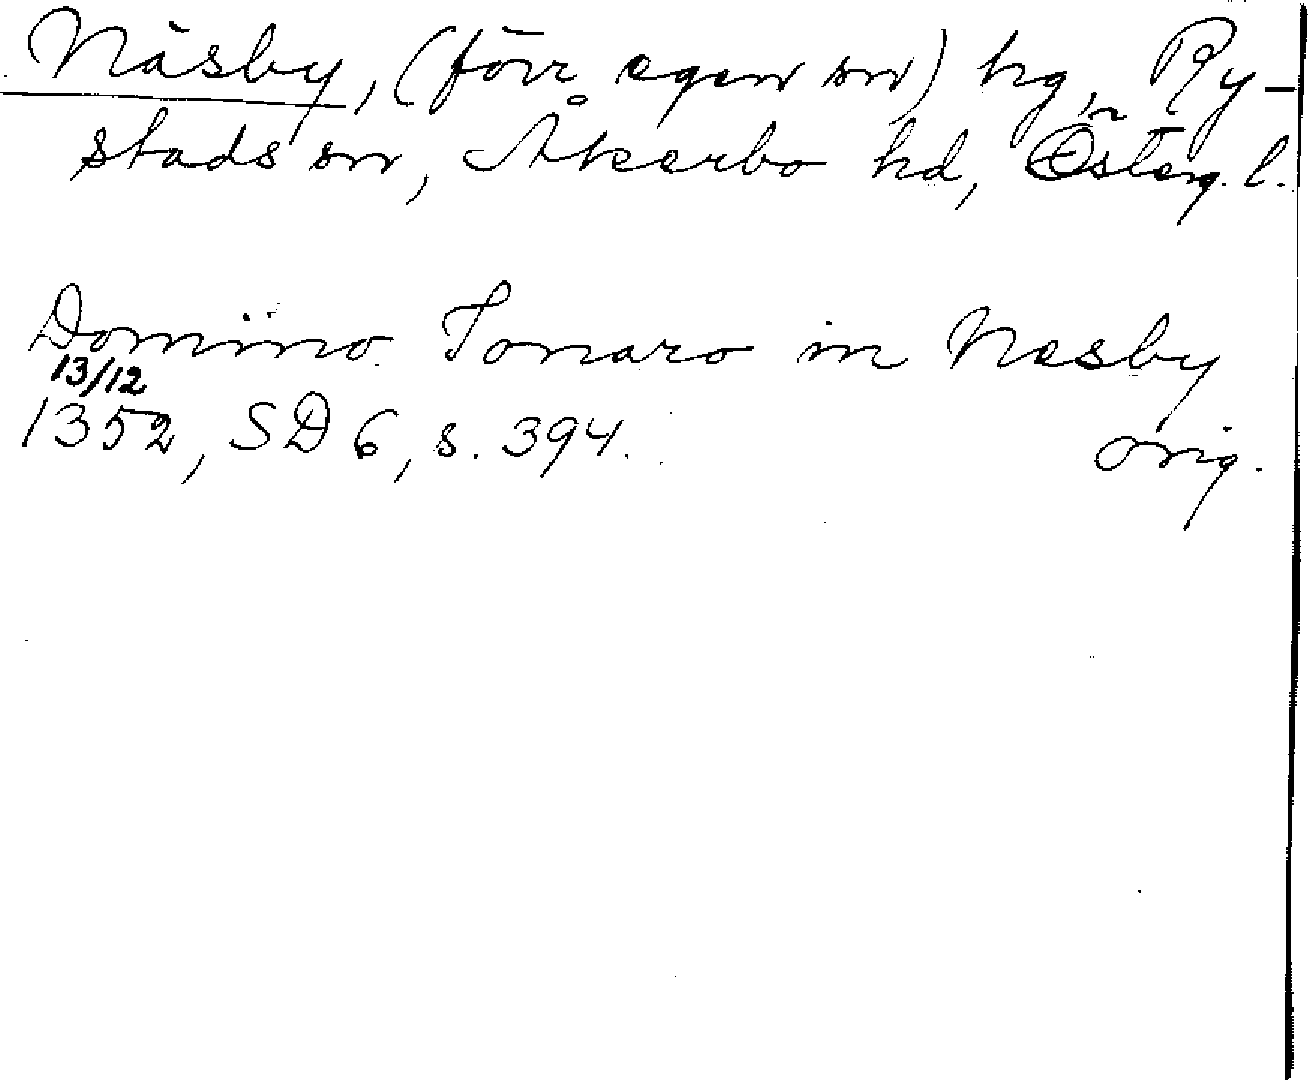 Näsby, (förr egen sn) hg, Ry-
stads sn, Åkerbo hd, Österg. l.
Domino Tonaro in Næsby
13/12
1352, SD 6, s. 394.
orig.